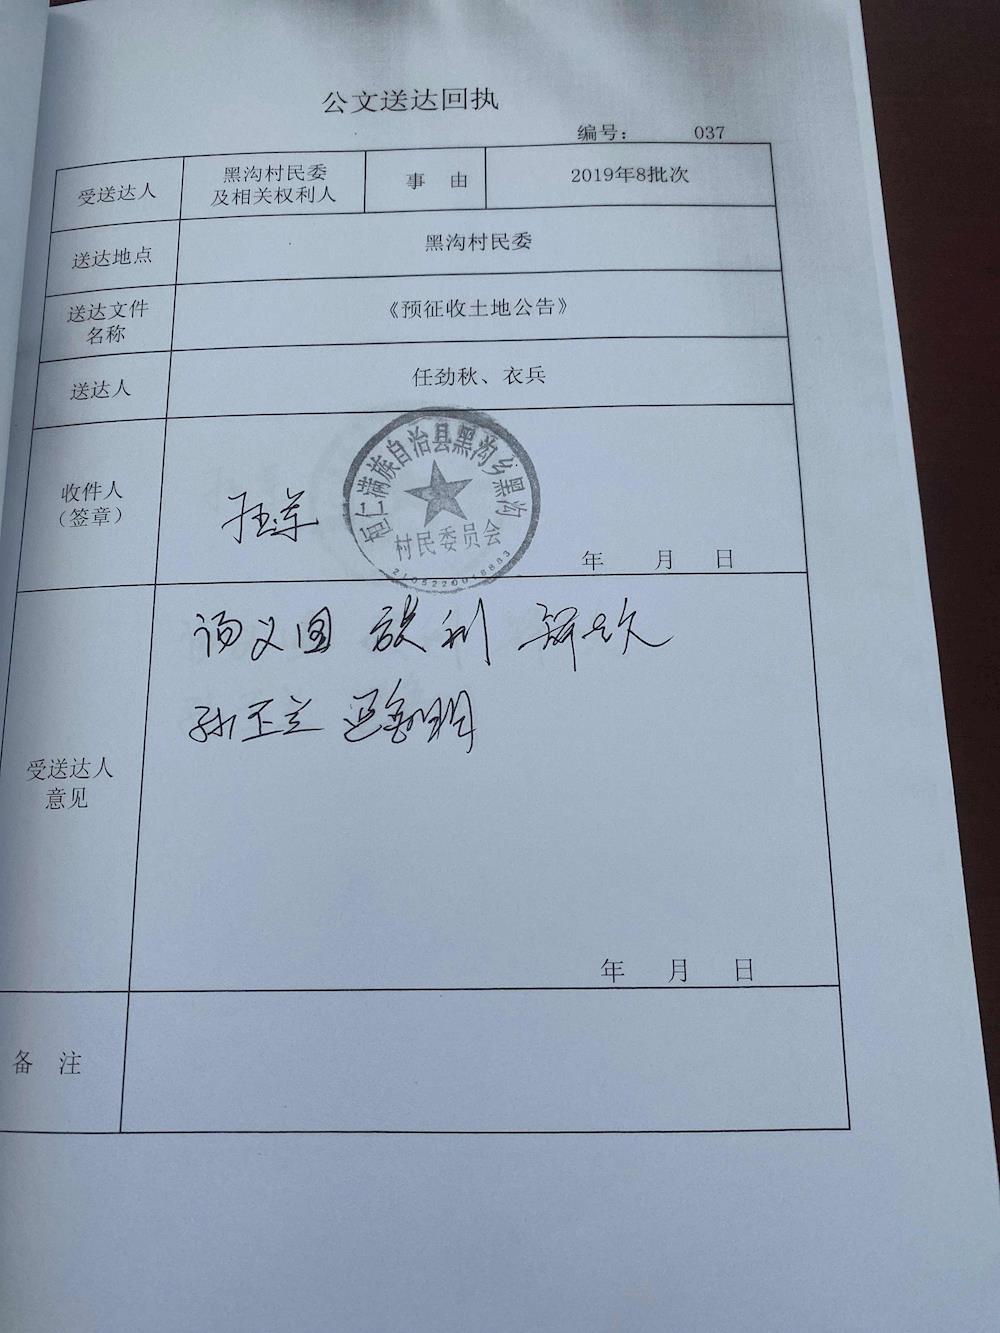 公文送达回执
编号： 037
受送达人
黑沟村民委
及相关权利人
事 由
2019年8批次
送达地点
黑沟村民委
送达文件
名称
《预征收土地公告》
送达人
任劲秋、衣兵
收件人
（签章）
桓仁满族自治县黑沟乡黑沟
村民委员会
年 月 日
汤义国
孙玉兰
受送达人
意见
年 月 日
备 注